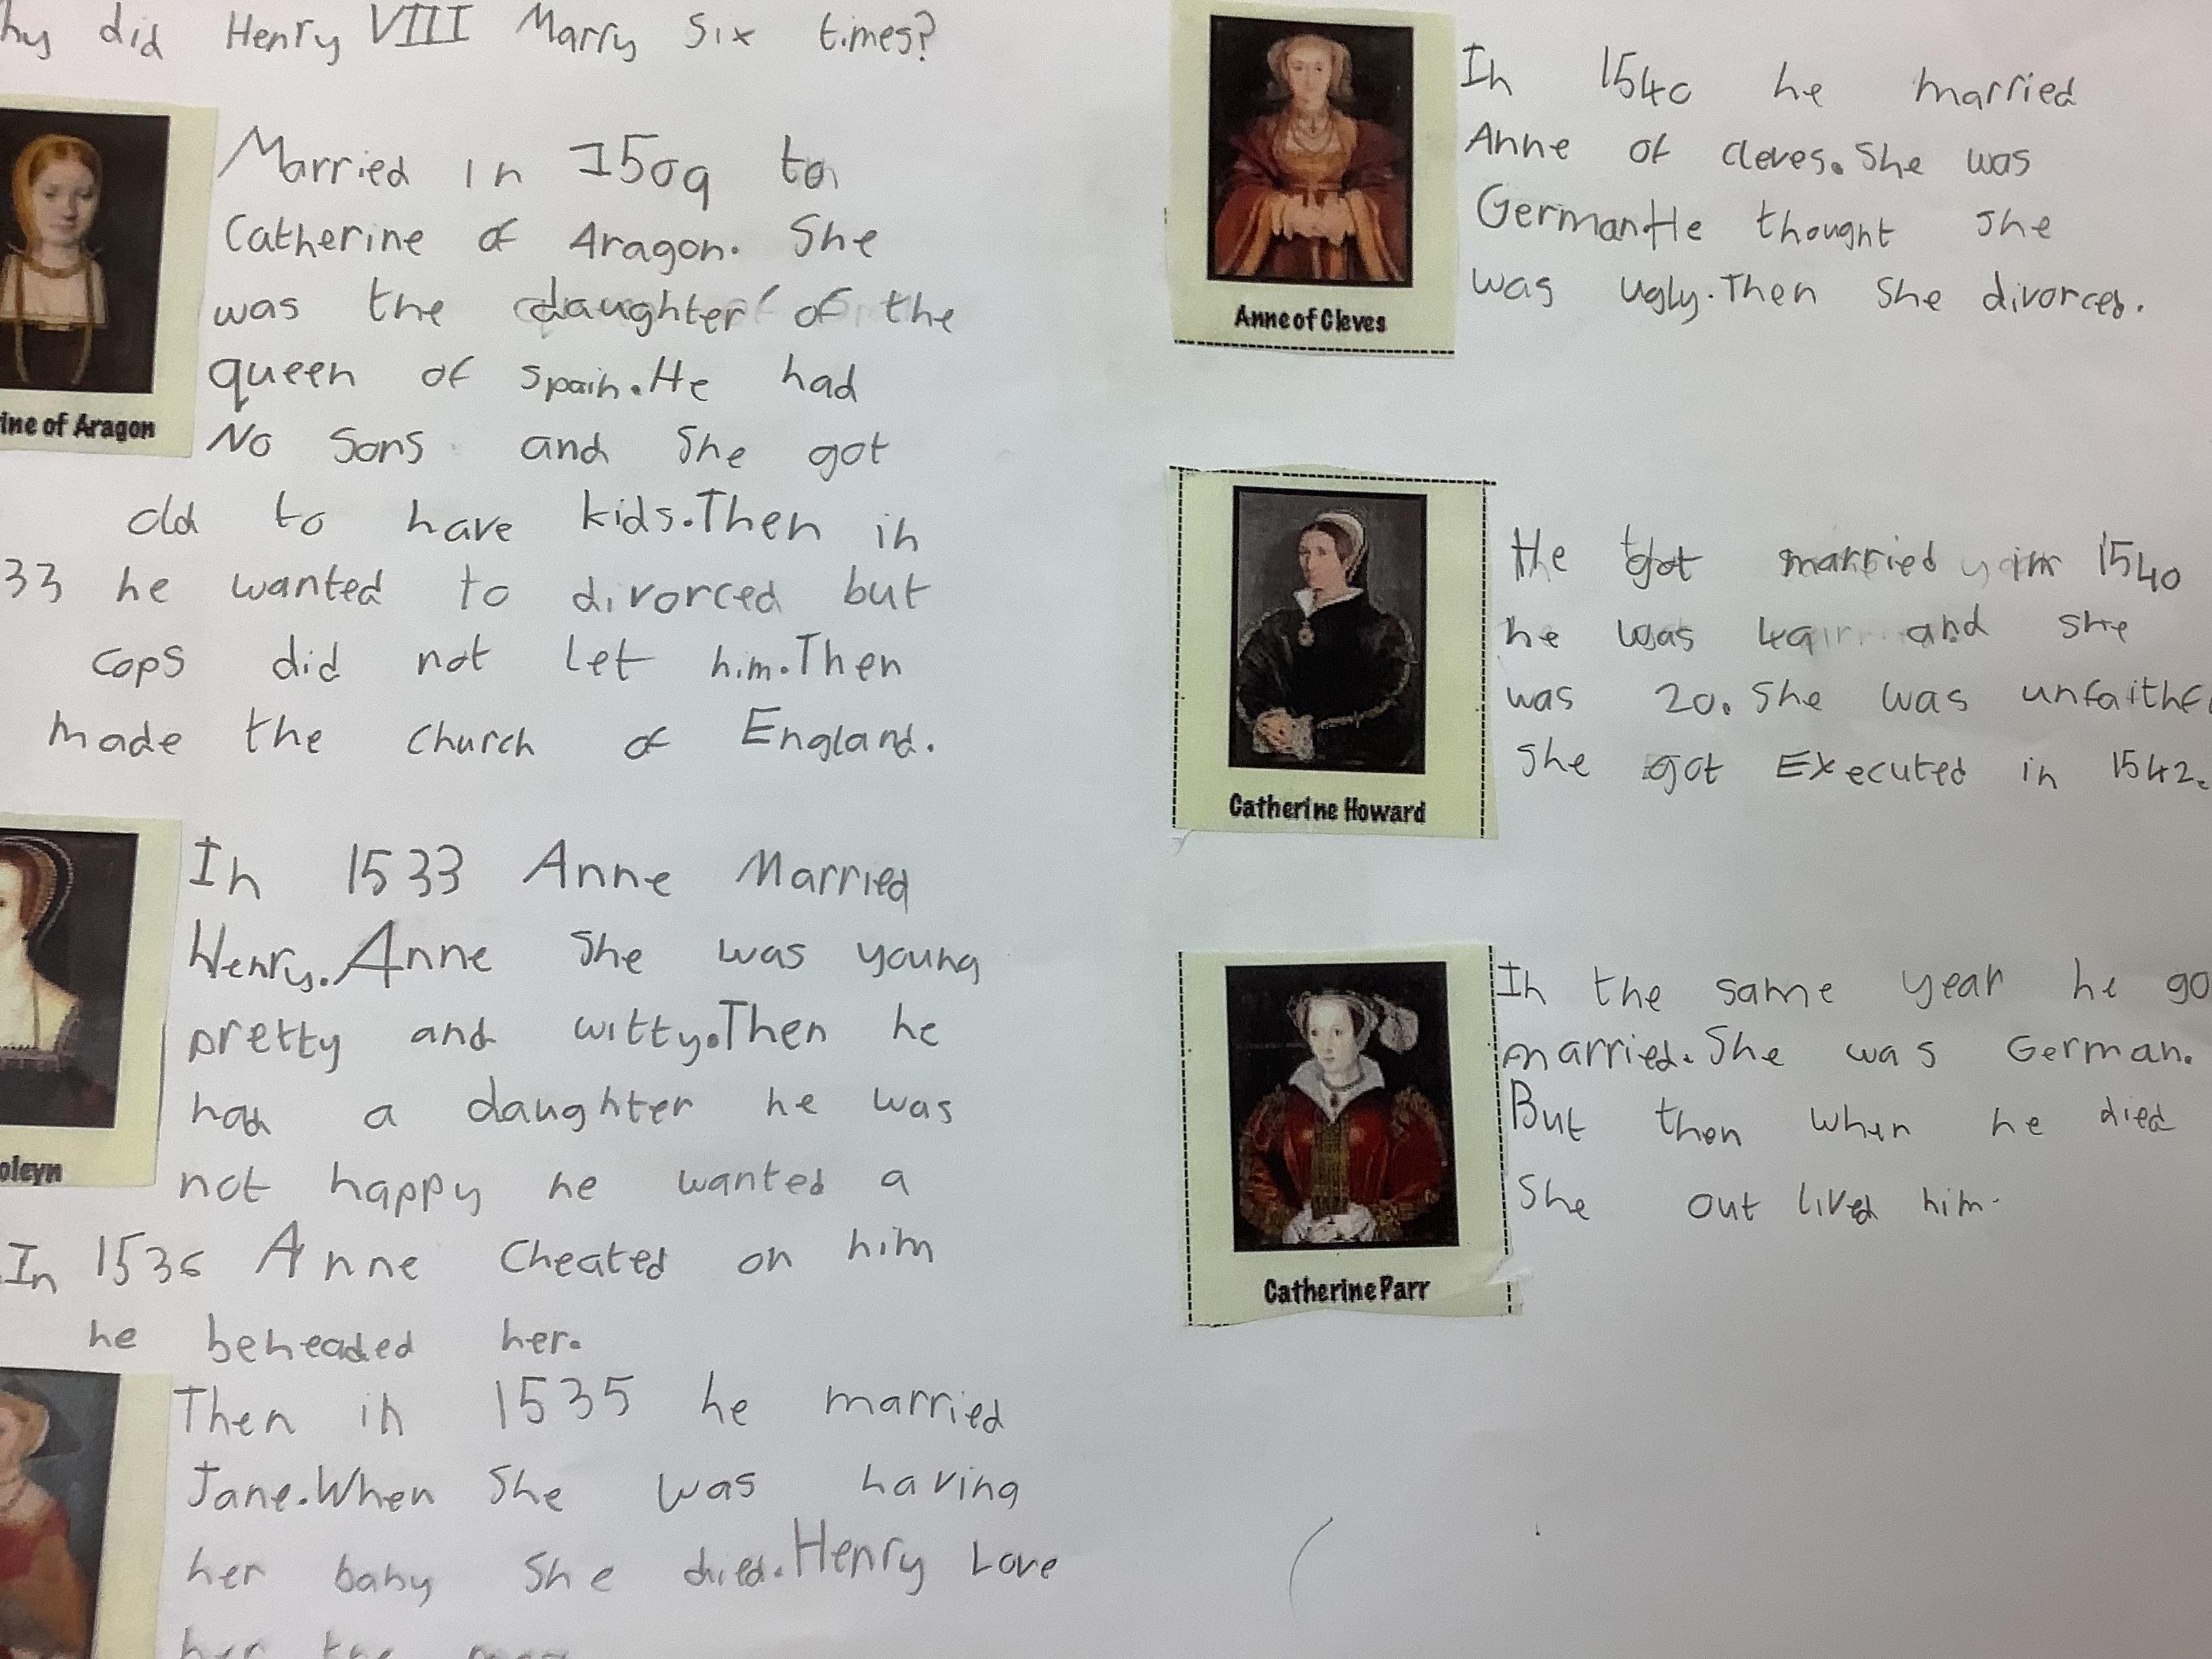 hy did Henry VIII Marry six times?
Married in 1509 to
Catherine of Aragon. She
was the daughter of the
queen of spain. He had
ine of Aragon
No Sons and she got
old to have kids. Then in
33 he wanted to divorced but
cops did not let him. Then
made the church of England.
In 1533 Anne Married
Henry. Anne she was young
pretty and witty. Then he
had a daughter he was
oleyn
not happy he wanted a
In 1536 Anne cheated on him
he beheaded her.
Then in 1535 he married
Jane. When she was having
her baby she died. Henry Love
her the
In 1540 he married
Anne of cleves. She was
German He thought she
was ugly. Then she divorced.
Anne of Cleves
He got married in 1540
he was 49 and she
was 20. She was unfaithf
she got Executed in 1542.
Catherine Howard
In the same year he go
married. She was German.
But then when he died
She out lived him.
Catherine Parr